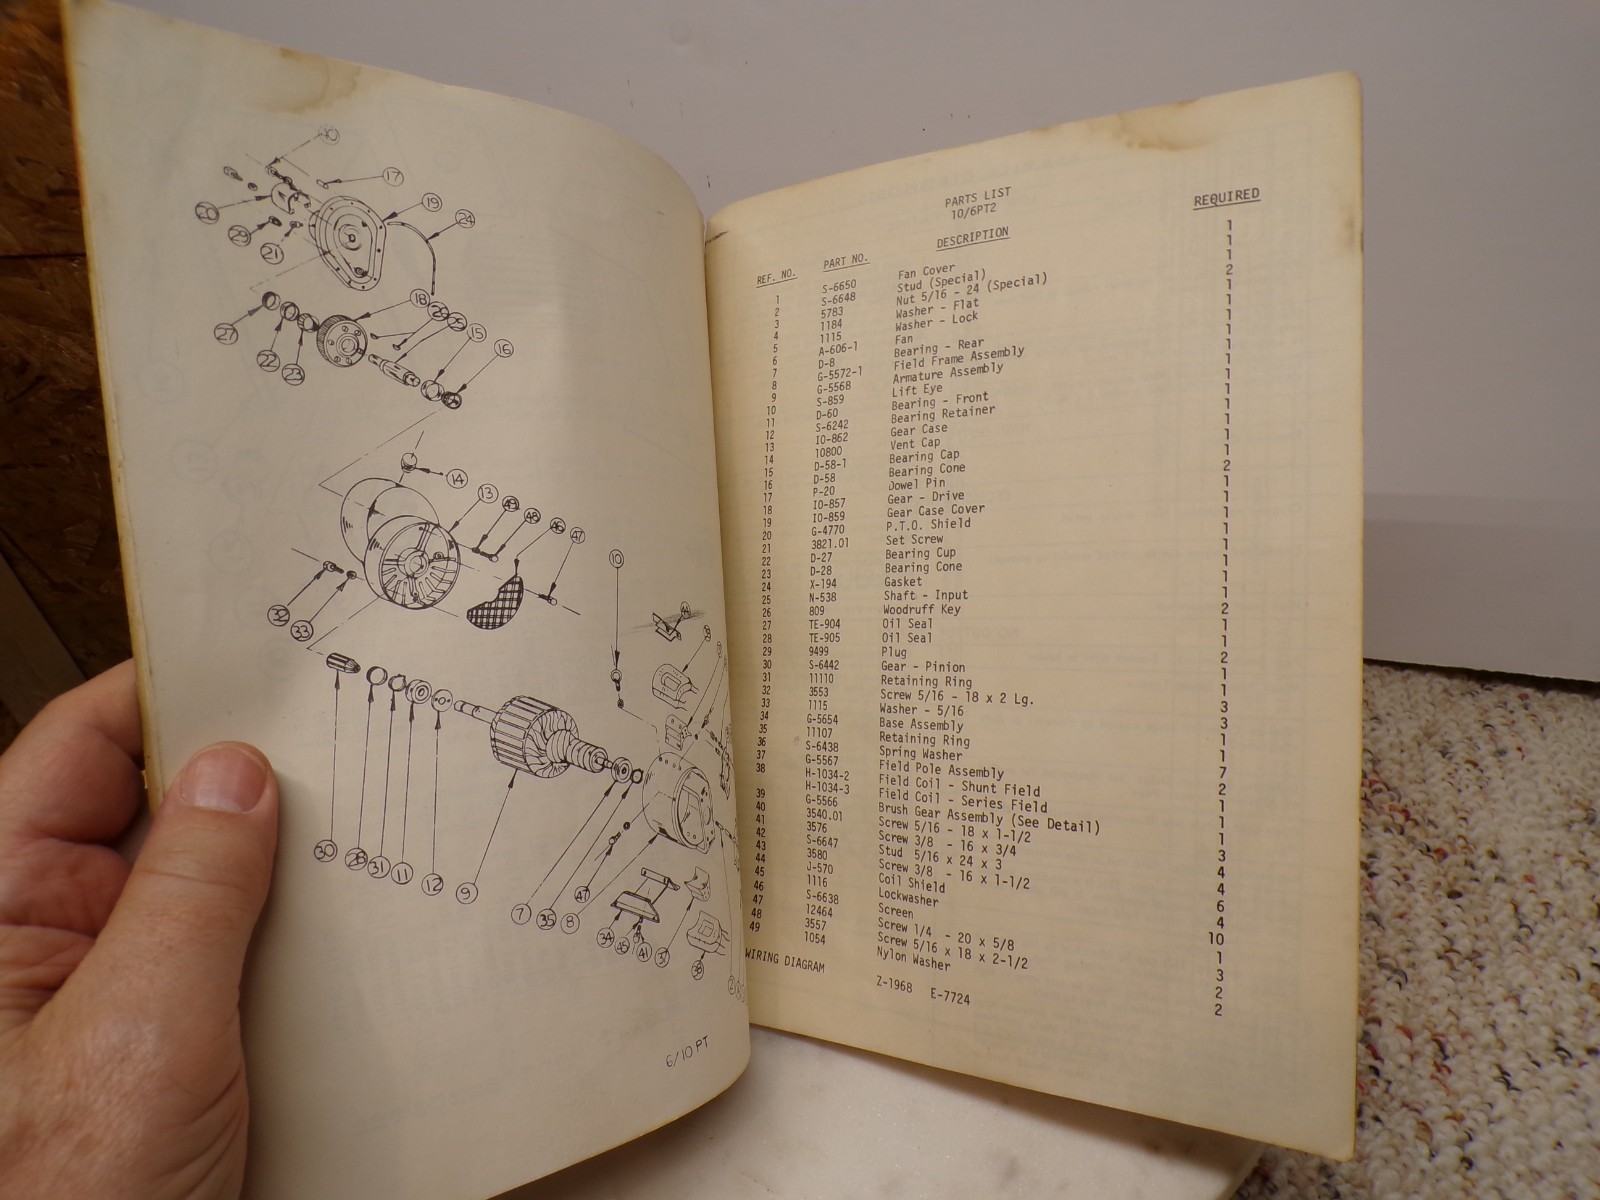 40
17
19
24
20
29
21
18
26
25
15
16
27
22
23
14
13
49
48
46
47
10
32
33
44
30
28
31
11
12
9
7
35
47
8
34
45
41
37
38
2
6/10 PT
PARTS LIST
10/6PT2
REF. NO. PART NO. DESCRIPTION REQUIRED
1 S-6650 Fan Cover 1
2 S-6648 Stud (Special) 1
3 5783 Nut 5/16 - 24 (Special) 1
4 1184 Washer - Flat 2
5 1115 Washer - Lock 1
6 A-606-1 Fan 1
7 D-8 Bearing - Rear 1
8 G-5572-1 Field Frame Assembly 1
9 G-5568 Armature Assembly 1
10 S-859 Lift Eye 1
11 D-60 Bearing - Front 1
12 S-6242 Bearing Retainer 1
13 IO-862 Gear Case 1
14 10800 Vent Cap 1
15 D-58-1 Bearing Cap 1
16 D-58 Bearing Cone 1
17 P-20 Dowel Pin 2
18 IO-857 Gear - Drive 1
19 IO-859 Gear Case Cover 1
20 G-4770 P.T.O. Shield 1
21 3821.01 Set Screw 1
22 D-27 Bearing Cup 1
23 D-28 Bearing Cone 1
24 X-194 Gasket 1
25 N-538 Shaft - Input 1
26 809 Woodruff Key 2
27 TE-904 Oil Seal 1
28 TE-905 Oil Seal 1
29 9499 Plug 2
30 S-6442 Gear - Pinion 1
31 11110 Retaining Ring 1
32 3553 Screw 5/16 - 18 x 2 Lg. 3
33 1115 Washer - 5/16 3
34 G-5654 Base Assembly 1
35 11107 Retaining Ring 1
36 S-6438 Spring Washer 7
37 G-5567 Field Pole Assembly 2
38 H-1034-2 Field Coil - Shunt Field 1
H-1034-3 Field Coil - Series Field 1
39 G-5566 Brush Gear Assembly (See Detail) 1
40 3540.01 Screw 5/16 - 18 x 1-1/2 3
41 3576 Screw 3/8 - 16 x 3/4 4
42 S-6647 Stud 5/16 x 24 x 3 4
43 3580 Screw 3/8 - 16 x 1-1/2 6
44 J-570 Coil Shield 4
45 1116 Lockwasher 10
46 S-6638 Screen 1
47 12464 Screw 1/4 - 20 x 5/8 3
48 3557 Screw 5/16 x 18 x 2-1/2 2
49 1054 Nylon Washer 2
WIRING DIAGRAM Z-1968 E-7724